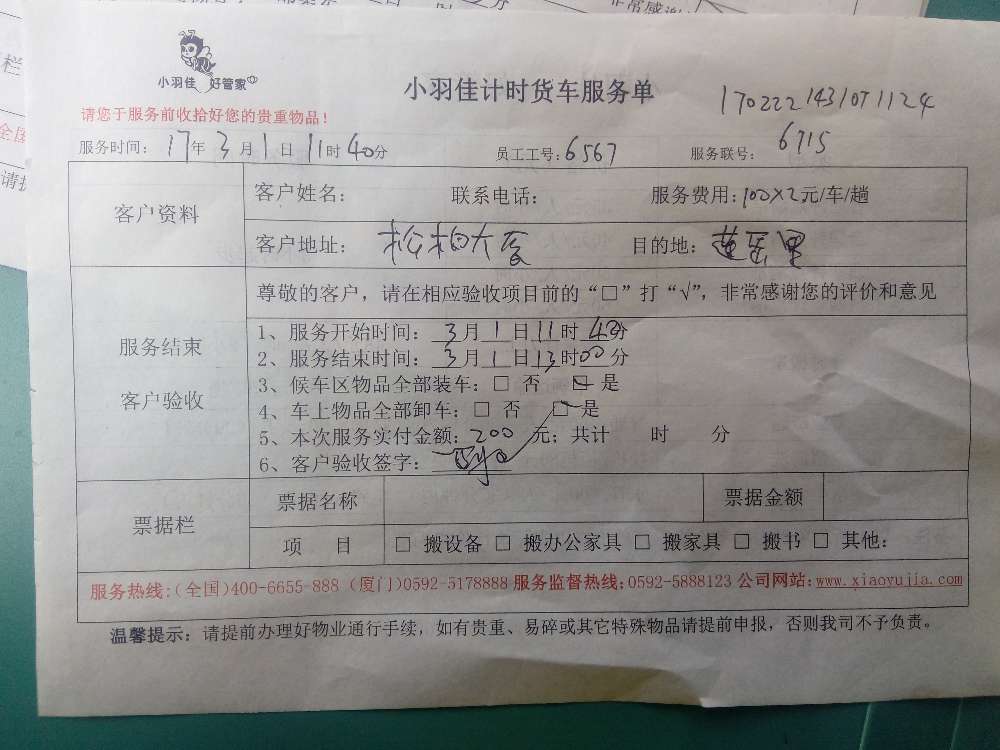 小羽佳 好管家
小羽佳计时货车服务单
1702221431071124
请您于服务前收拾好您的贵重物品！
服务时间：17年3月1日11时40分 员工工号：6567 服务联号：6715
客户资料
客户姓名： 联系电话： 服务费用：100×2元/车/趟
客户地址：松柏大厦 目的地：莲岳里
服务结束
客户验收
尊敬的客户，请在相应验收项目前的“□”打“√”，非常感谢您的评价和意见
1、服务开始时间：3月1日11时40分
2、服务结束时间：3月1日13时00分
3、候车区物品全部装车：□ 否 □ 是
4、车上物品全部卸车：□ 否 □ 是
5、本次服务实付金额：200元；共计 时 分
6、客户验收签字：
票据栏
票据名称 票据金额
项 目 □ 搬设备 □ 搬办公家具 □ 搬家具 □ 搬书 □ 其他：
服务热线：(全国)400-6655-888 (厦门)0592-5178888 服务监督热线：0592-5888123 公司网站：www.xiaoyujia.com
温馨提示：请提前办理好物业通行手续，如有贵重、易碎或其它特殊物品请提前申报，否则我司不予负责。